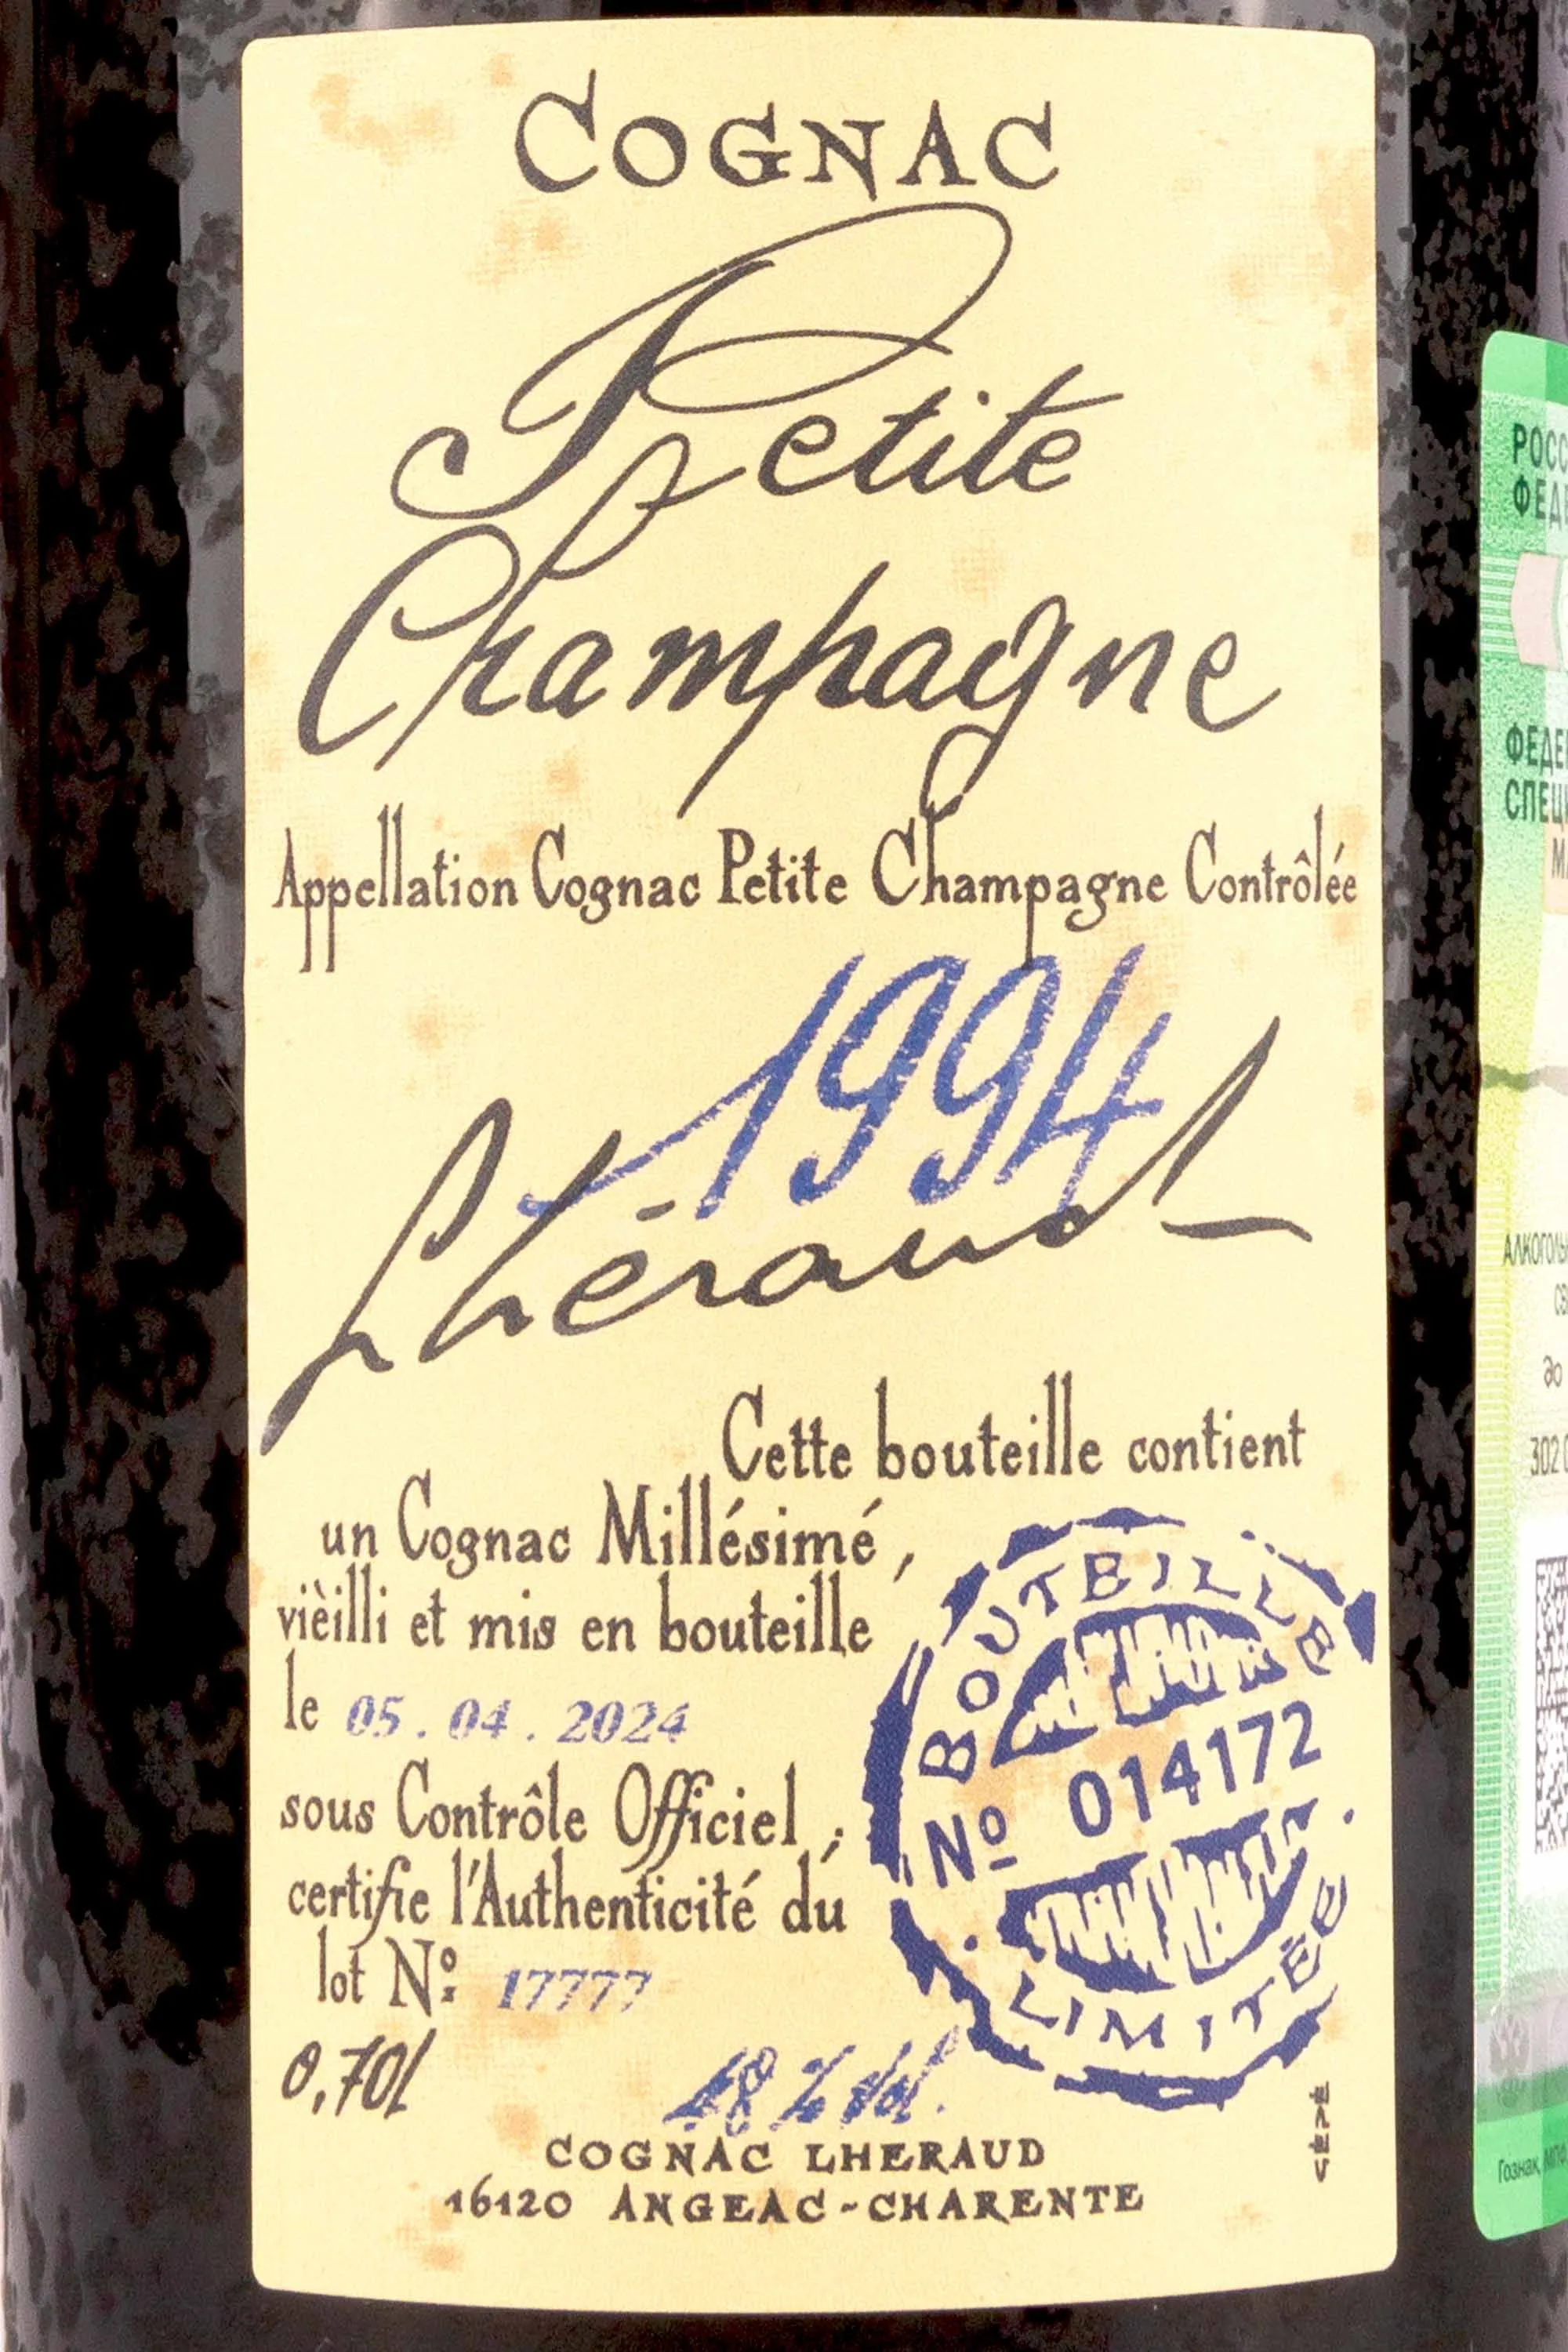 COGNAC
Petite
Champagne
Appellation Cognac Petite Champagne Contrôlée
1994
Lhéraud
Cette bouteille contient
un Cognac Millésimé,
vièilli et mis en bouteille
le 05.04.2024
sous Contrôle Officiel,
certifie l'Authenticité du
lot Nº 17777
BOUTEILLE
Nº 014172
LIMITÉE
0,70l
48 % Vol.
COGNAC LHERAUD
16120 ANGEAC-CHARENTE
РОСС
ФЕД
ФЕДЕ
СПЕЦ
АЛКОГОЛЬ
до
302
Гознак